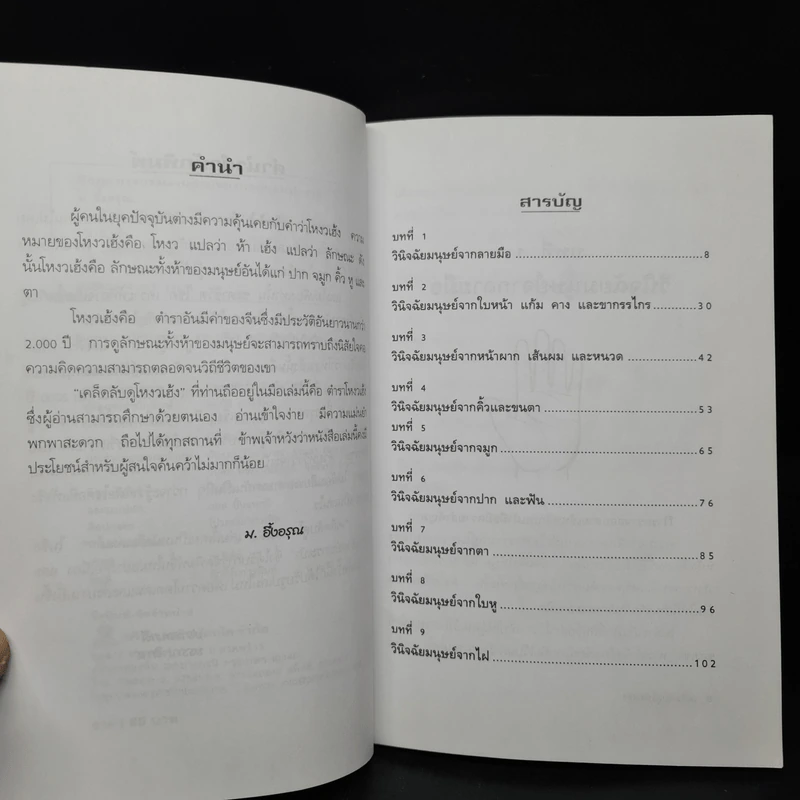 คำนำ
ผู้คนในยุคปัจจุบันต่างมีความคุ้นเคยกับคำว่าโหงวเฮ้ง ความ
หมายของโหงวเฮ้งคือ โหงว แปลว่า ห้า เฮ้ง แปลว่า ลักษณะ ดัง
นั้นโหงวเฮ้งคือ ลักษณะทั้งห้าของมนุษย์อันได้แก่ ปาก จมูก คิ้ว หู และ
ตา
โหงวเฮ้งคือ ตำราอันมีค่าของจีนซึ่งมีประวัติอันยาวนานกว่า
2.000 ปี การดูลักษณะทั้งห้าของมนุษย์จะสามารถทราบถึงนิสัยใจคอ
ความคิดความสามารถตลอดจนวิถีชีวิตของเขา
"เคล็ดลับดูโหงวเฮ้ง" ที่ท่านถืออยู่ในมือเล่มนี้คือ ตำราโหงวเฮ้ง
ซึ่งผู้อ่านสามารถศึกษาด้วยตนเอง อ่านเข้าใจง่าย มีความแม่นยำ
พกพาสะดวก ถือไปได้ทุกสถานที่ ข้าพเจ้าหวังว่าหนังสือเล่มนี้คงมี
ประโยชน์สำหรับผู้สนใจค้นคว้าไม่มากก็น้อย
ม. อึ้งอรุณ
สารบัญ
บทที่ 1
วินิจฉัยมนุษย์จากลายมือ 8
บทที่ 2
วินิจฉัยมนุษย์จากใบหน้า แก้ม คาง และขากรรไกร 30
บทที่ 3
วินิจฉัยมนุษย์จากหน้าผาก เส้นผม และหนวด 42
บทที่ 4
วินิจฉัยมนุษย์จากคิ้วและขนตา 53
บทที่ 5
วินิจฉัยมนุษย์จากจมูก 65
บทที่ 6
วินิจฉัยมนุษย์จากปาก และฟัน 76
บทที่ 7
วินิจฉัยมนุษย์จากตา 85
บทที่ 8
วินิจฉัยมนุษย์จากใบหู 96
บทที่ 9
วินิจฉัยมนุษย์จากไฝ 102